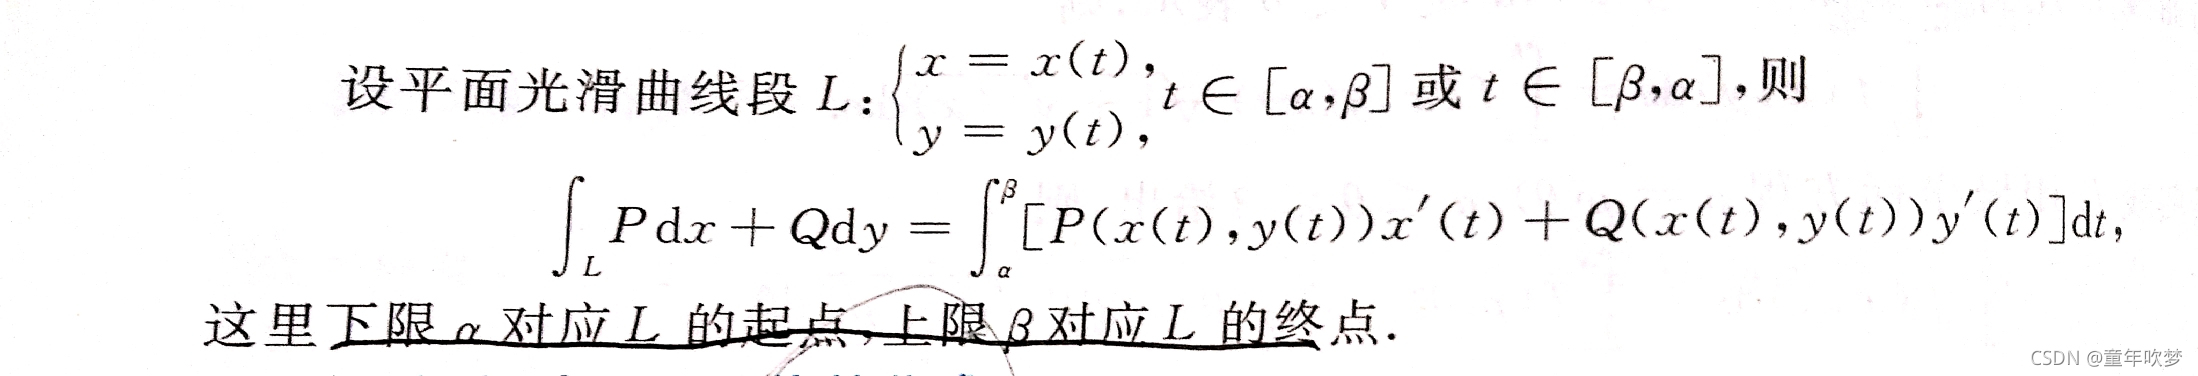 设平面光滑曲线段 L: { x = x(t), y = y(t), t ∈ [α,β] 或 t ∈ [β,α],则
∫_L Pdx + Qdy = ∫_α^β [P(x(t),y(t))x′(t) + Q(x(t),y(t))y′(t)]dt,
这里下限 α 对应 L 的起点,上限 β 对应 L 的终点.
CSDN @童年吹梦